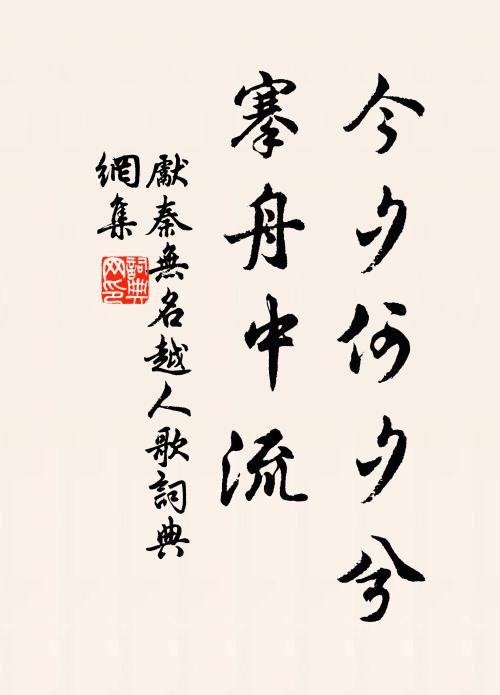 今夕何夕兮
搴舟中流
獻秦無名越人歌詞典
網集
詞典
网印